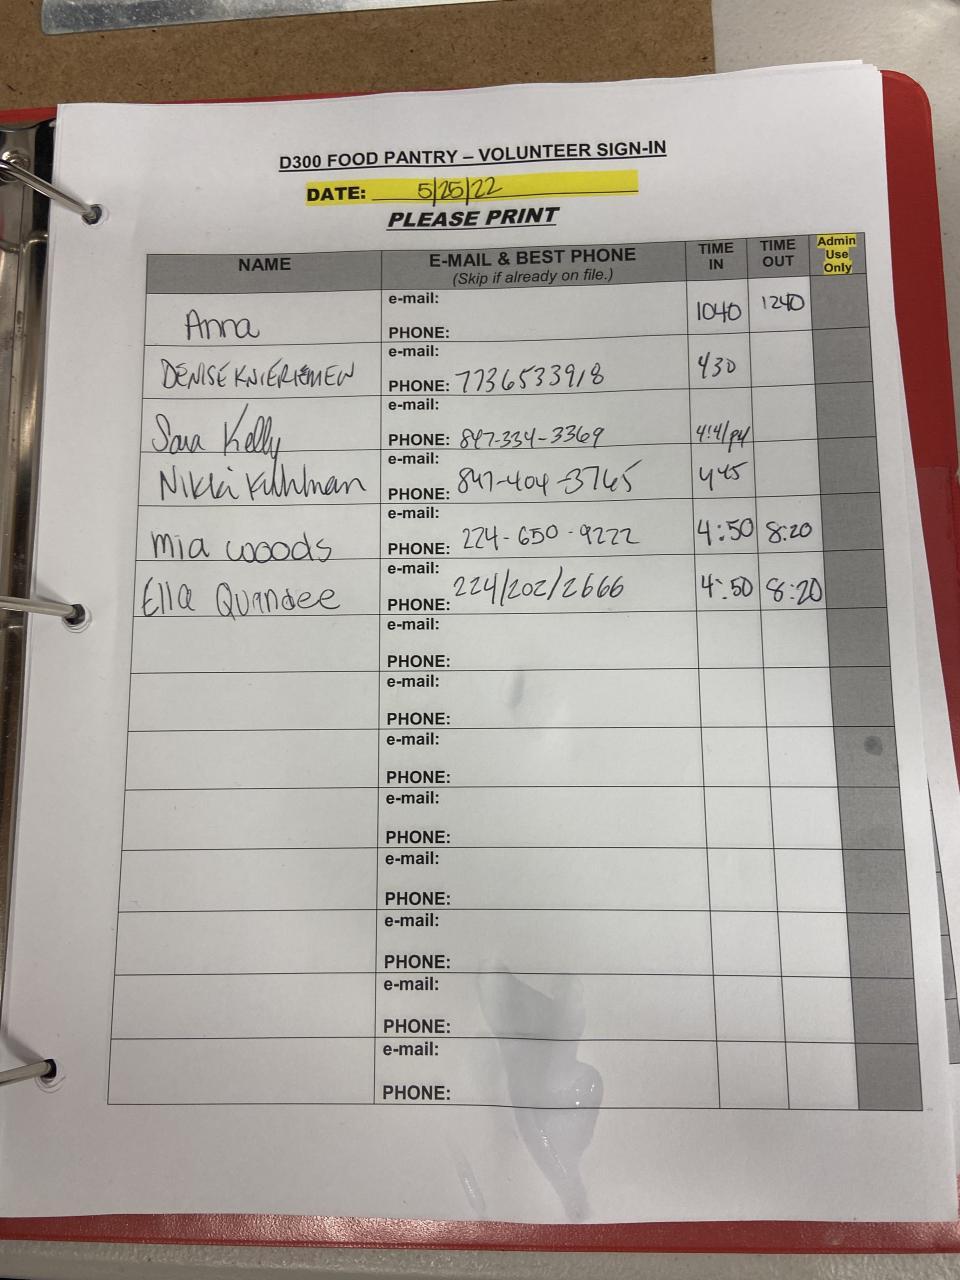 D300 FOOD PANTRY – VOLUNTEER SIGN-IN
DATE: 5/25/22
PLEASE PRINT
NAME E-MAIL & BEST PHONE (Skip if already on file.) TIME IN TIME OUT Admin Use Only
e-mail:
Anna 1040 1240
PHONE:
e-mail:
DENISE KNIERIEMEN 430
PHONE: 7736533918
e-mail:
Sara Kelly 4:41pm
PHONE: 847-334-3369
e-mail:
Nikki Kuhlman 445
PHONE: 847-404-3765
e-mail:
Mia woods 4:50 8:20
PHONE: 224-650-9222
e-mail:
Ella Quandee 4:50 8:20
PHONE: 224/202/2666
e-mail:
PHONE:
e-mail:
PHONE:
e-mail:
PHONE:
e-mail:
PHONE:
e-mail:
PHONE:
e-mail:
PHONE:
e-mail:
PHONE:
e-mail:
PHONE: